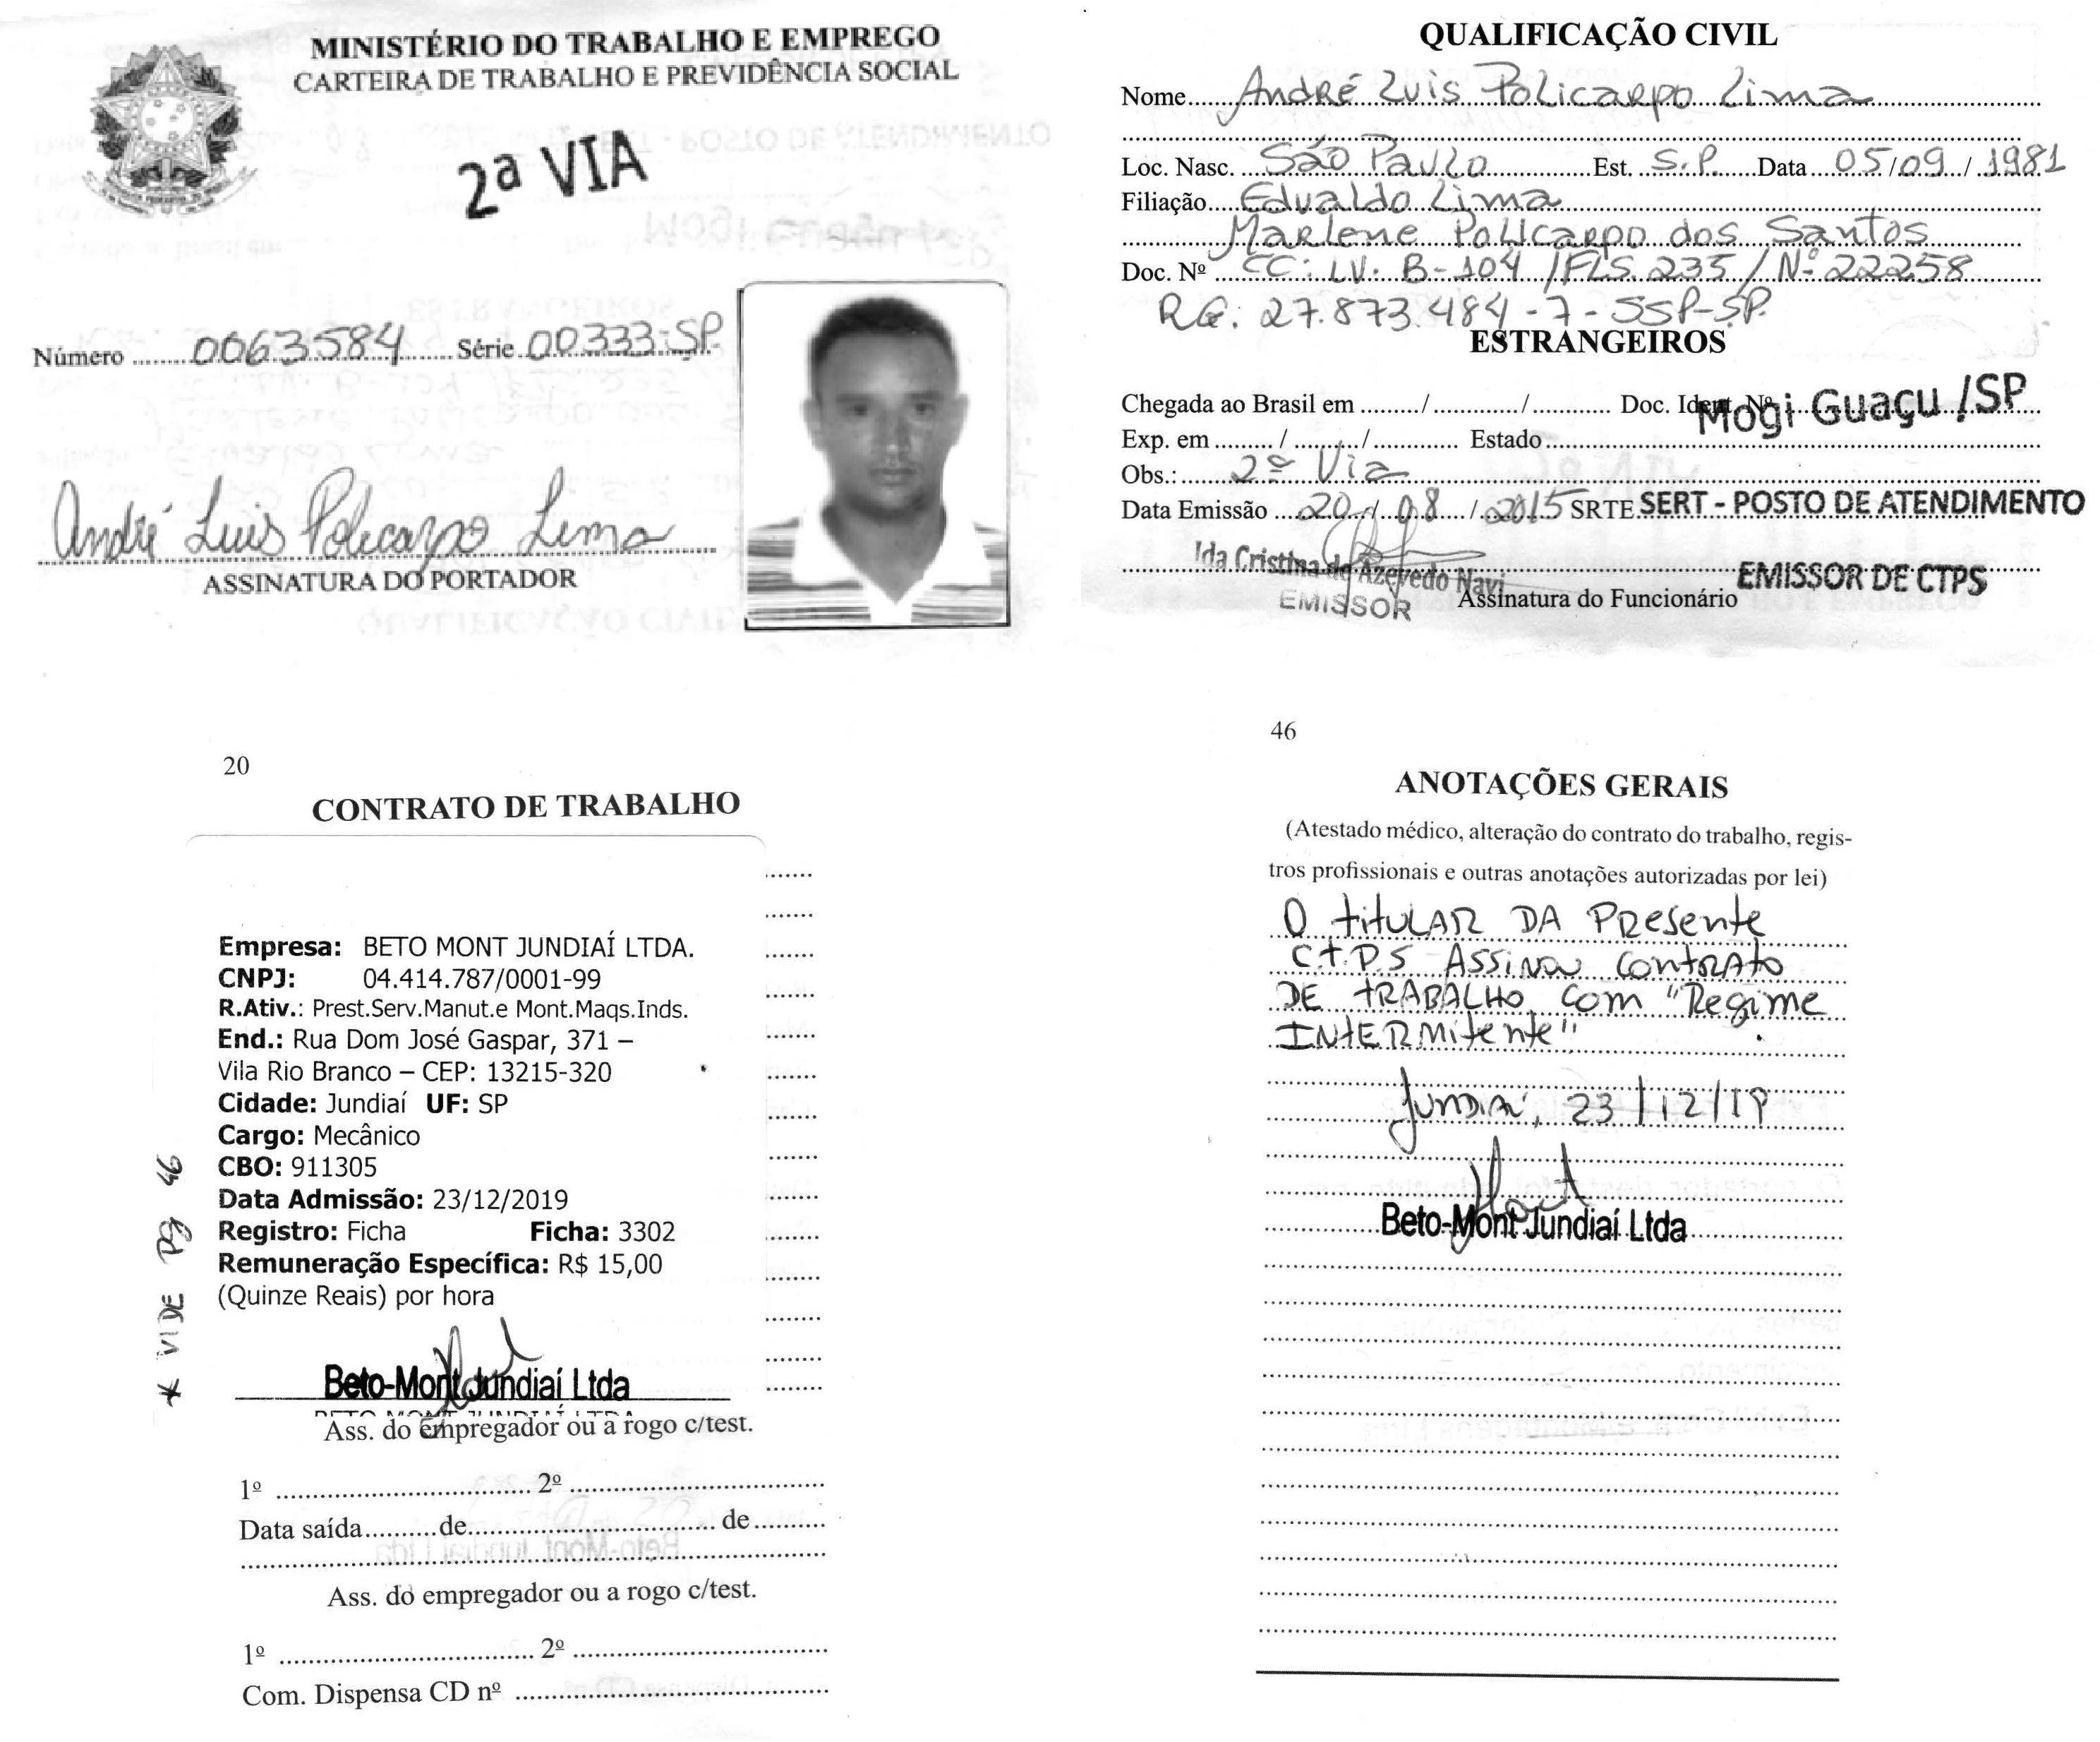 MINISTÉRIO DO TRABALHO E EMPREGO
CARTEIRA DE TRABALHO E PREVIDÊNCIA SOCIAL
2ª VIA
Número 0063584 Série 00333-SP
André Luis Policarpo Lima
ASSINATURA DO PORTADOR
QUALIFICAÇÃO CIVIL
Nome André Luis Policarpo Lima
Loc. Nasc. São Paulo Est. S.P. Data 05/09/1981
Filiação Edvaldo Lima
Marlene Policarpo dos Santos
Doc. Nº CC: LV. B-104 /FLS. 235/Nº 22258
RG. 27.873.484-7-SSP-SP.
ESTRANGEIROS
Chegada ao Brasil em ......../............/........... Doc. Ident. Nº
Mogi Guaçu /SP
Exp. em ........./........./............ Estado
Obs.: 2ª Via
Data Emissão 20/08/2015 SRTE SERT - POSTO DE ATENDIMENTO
Ida Cristina de Azevedo Navi
EMISSOR
Assinatura do Funcionário
EMISSOR DE CTPS
20
CONTRATO DE TRABALHO
Empresa: BETO MONT JUNDIAÍ LTDA.
CNPJ: 04.414.787/0001-99
R.Ativ.: Prest.Serv.Manut.e Mont.Maqs.Inds.
End.: Rua Dom José Gaspar, 371 –
Vila Rio Branco – CEP: 13215-320
Cidade: Jundiaí UF: SP
Cargo: Mecânico
CBO: 911305
Data Admissão: 23/12/2019
Registro: Ficha Ficha: 3302
Remuneração Específica: R$ 15,00
(Quinze Reais) por hora
* VIDE PG 46
Beto-Mont Jundiaí Ltda
BETO MONT JUNDIAÍ LTDA
Ass. do empregador ou a rogo c/test.
1º 2º
Data saída de de
Ass. do empregador ou a rogo c/test.
1º 2º
Com. Dispensa CD nº
46
ANOTAÇÕES GERAIS
(Atestado médico, alteração do contrato do trabalho, regis-
tros profissionais e outras anotações autorizadas por lei)
O TITULAR DA PResente
C.T.P.S ASSINOU CONTRATO
DE TRABALHO com "Regime
INTERMitente"
Jundiaí, 23/12/19
Beto-Mont Jundiaí Ltda